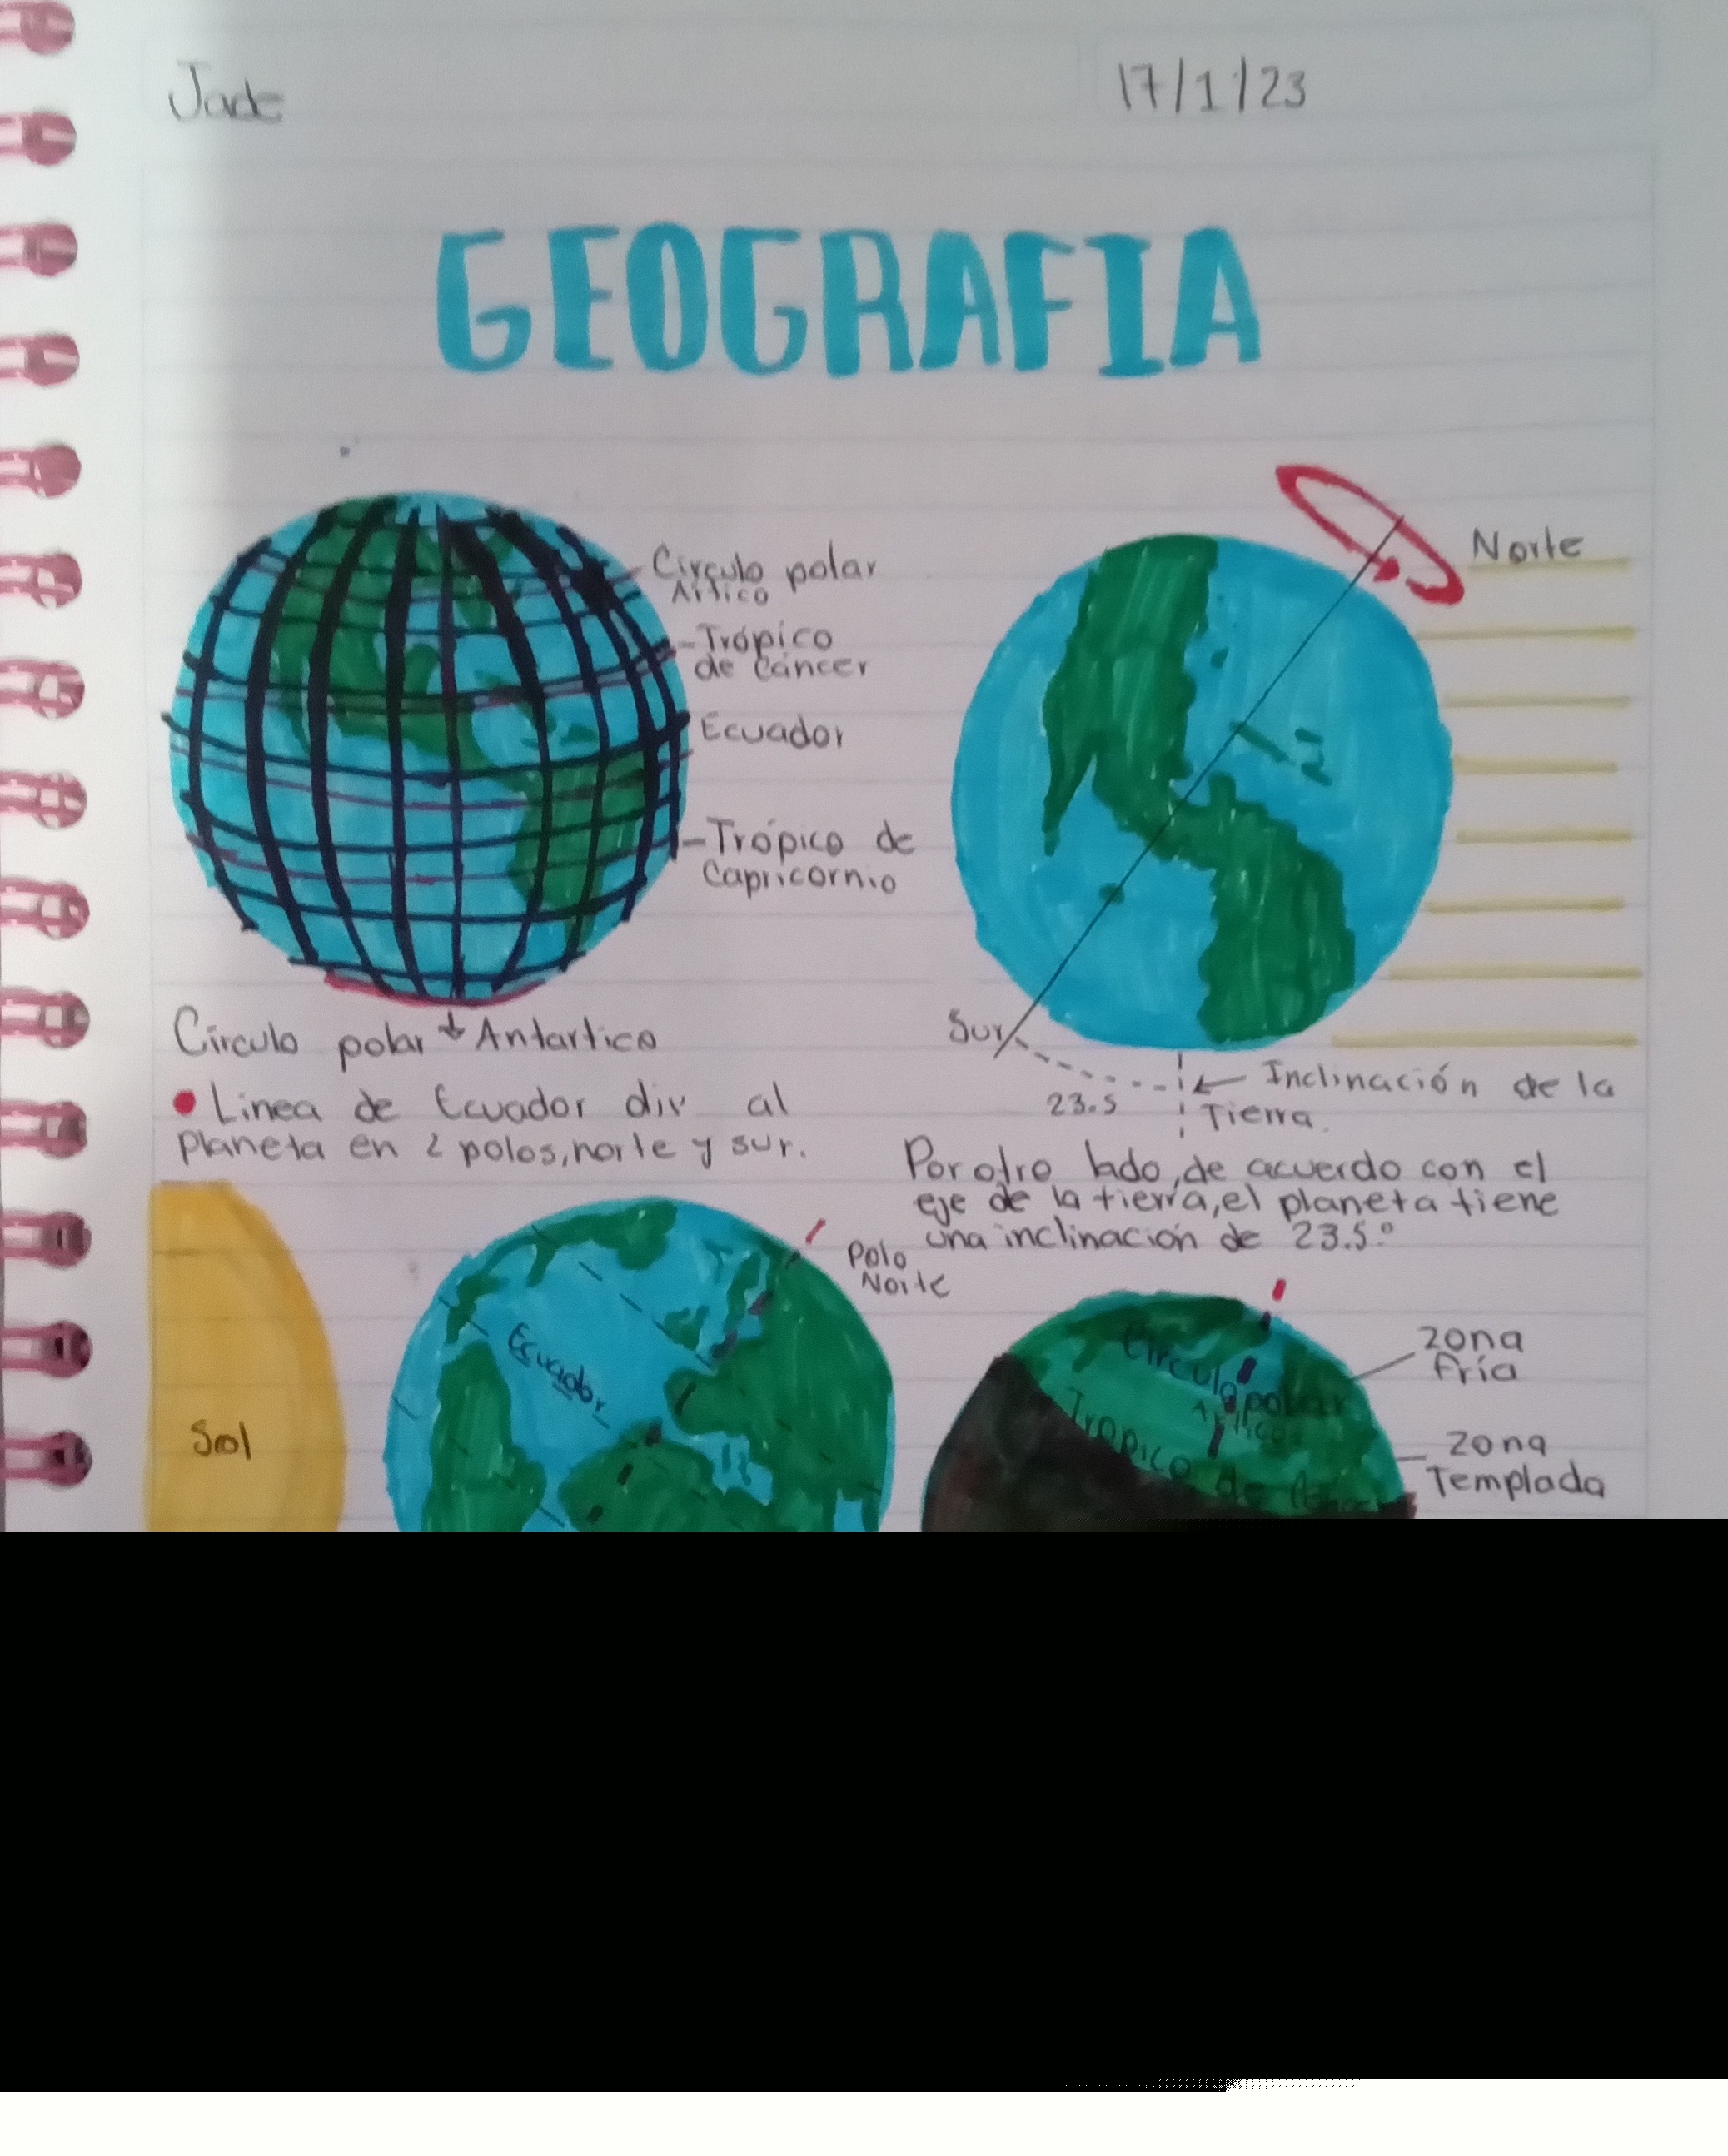 Jade
17/1/23
GEOGRAFIA
Círculo polar
Ártico
Trópico
de Cáncer
Ecuador
Trópico de
Capricornio
Círculo polar Antartico
Norte
Sur
23.5
Inclinación de la
Tierra.
Linea de Ecuador div al
Planeta en 2 polos, norte y sur.
Por otro lado, de acuerdo con el
eje de la tierra, el planeta tiene
una inclinación de 23.5°
Sol
Ecuador
Polo
Norte
Circulo polar
Artico
Tropico de Cancer
zona
fría
zona
Templada